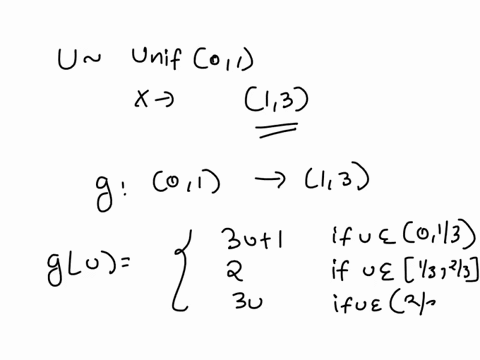 U~ Unif (0,1)
X→ (1,3)
g: (0,1) → (1,3)
g(u) = { 3u+1 if u ε (0,1/3)
2 if u ε [1/3, 2/3]
3u if u ε (2/